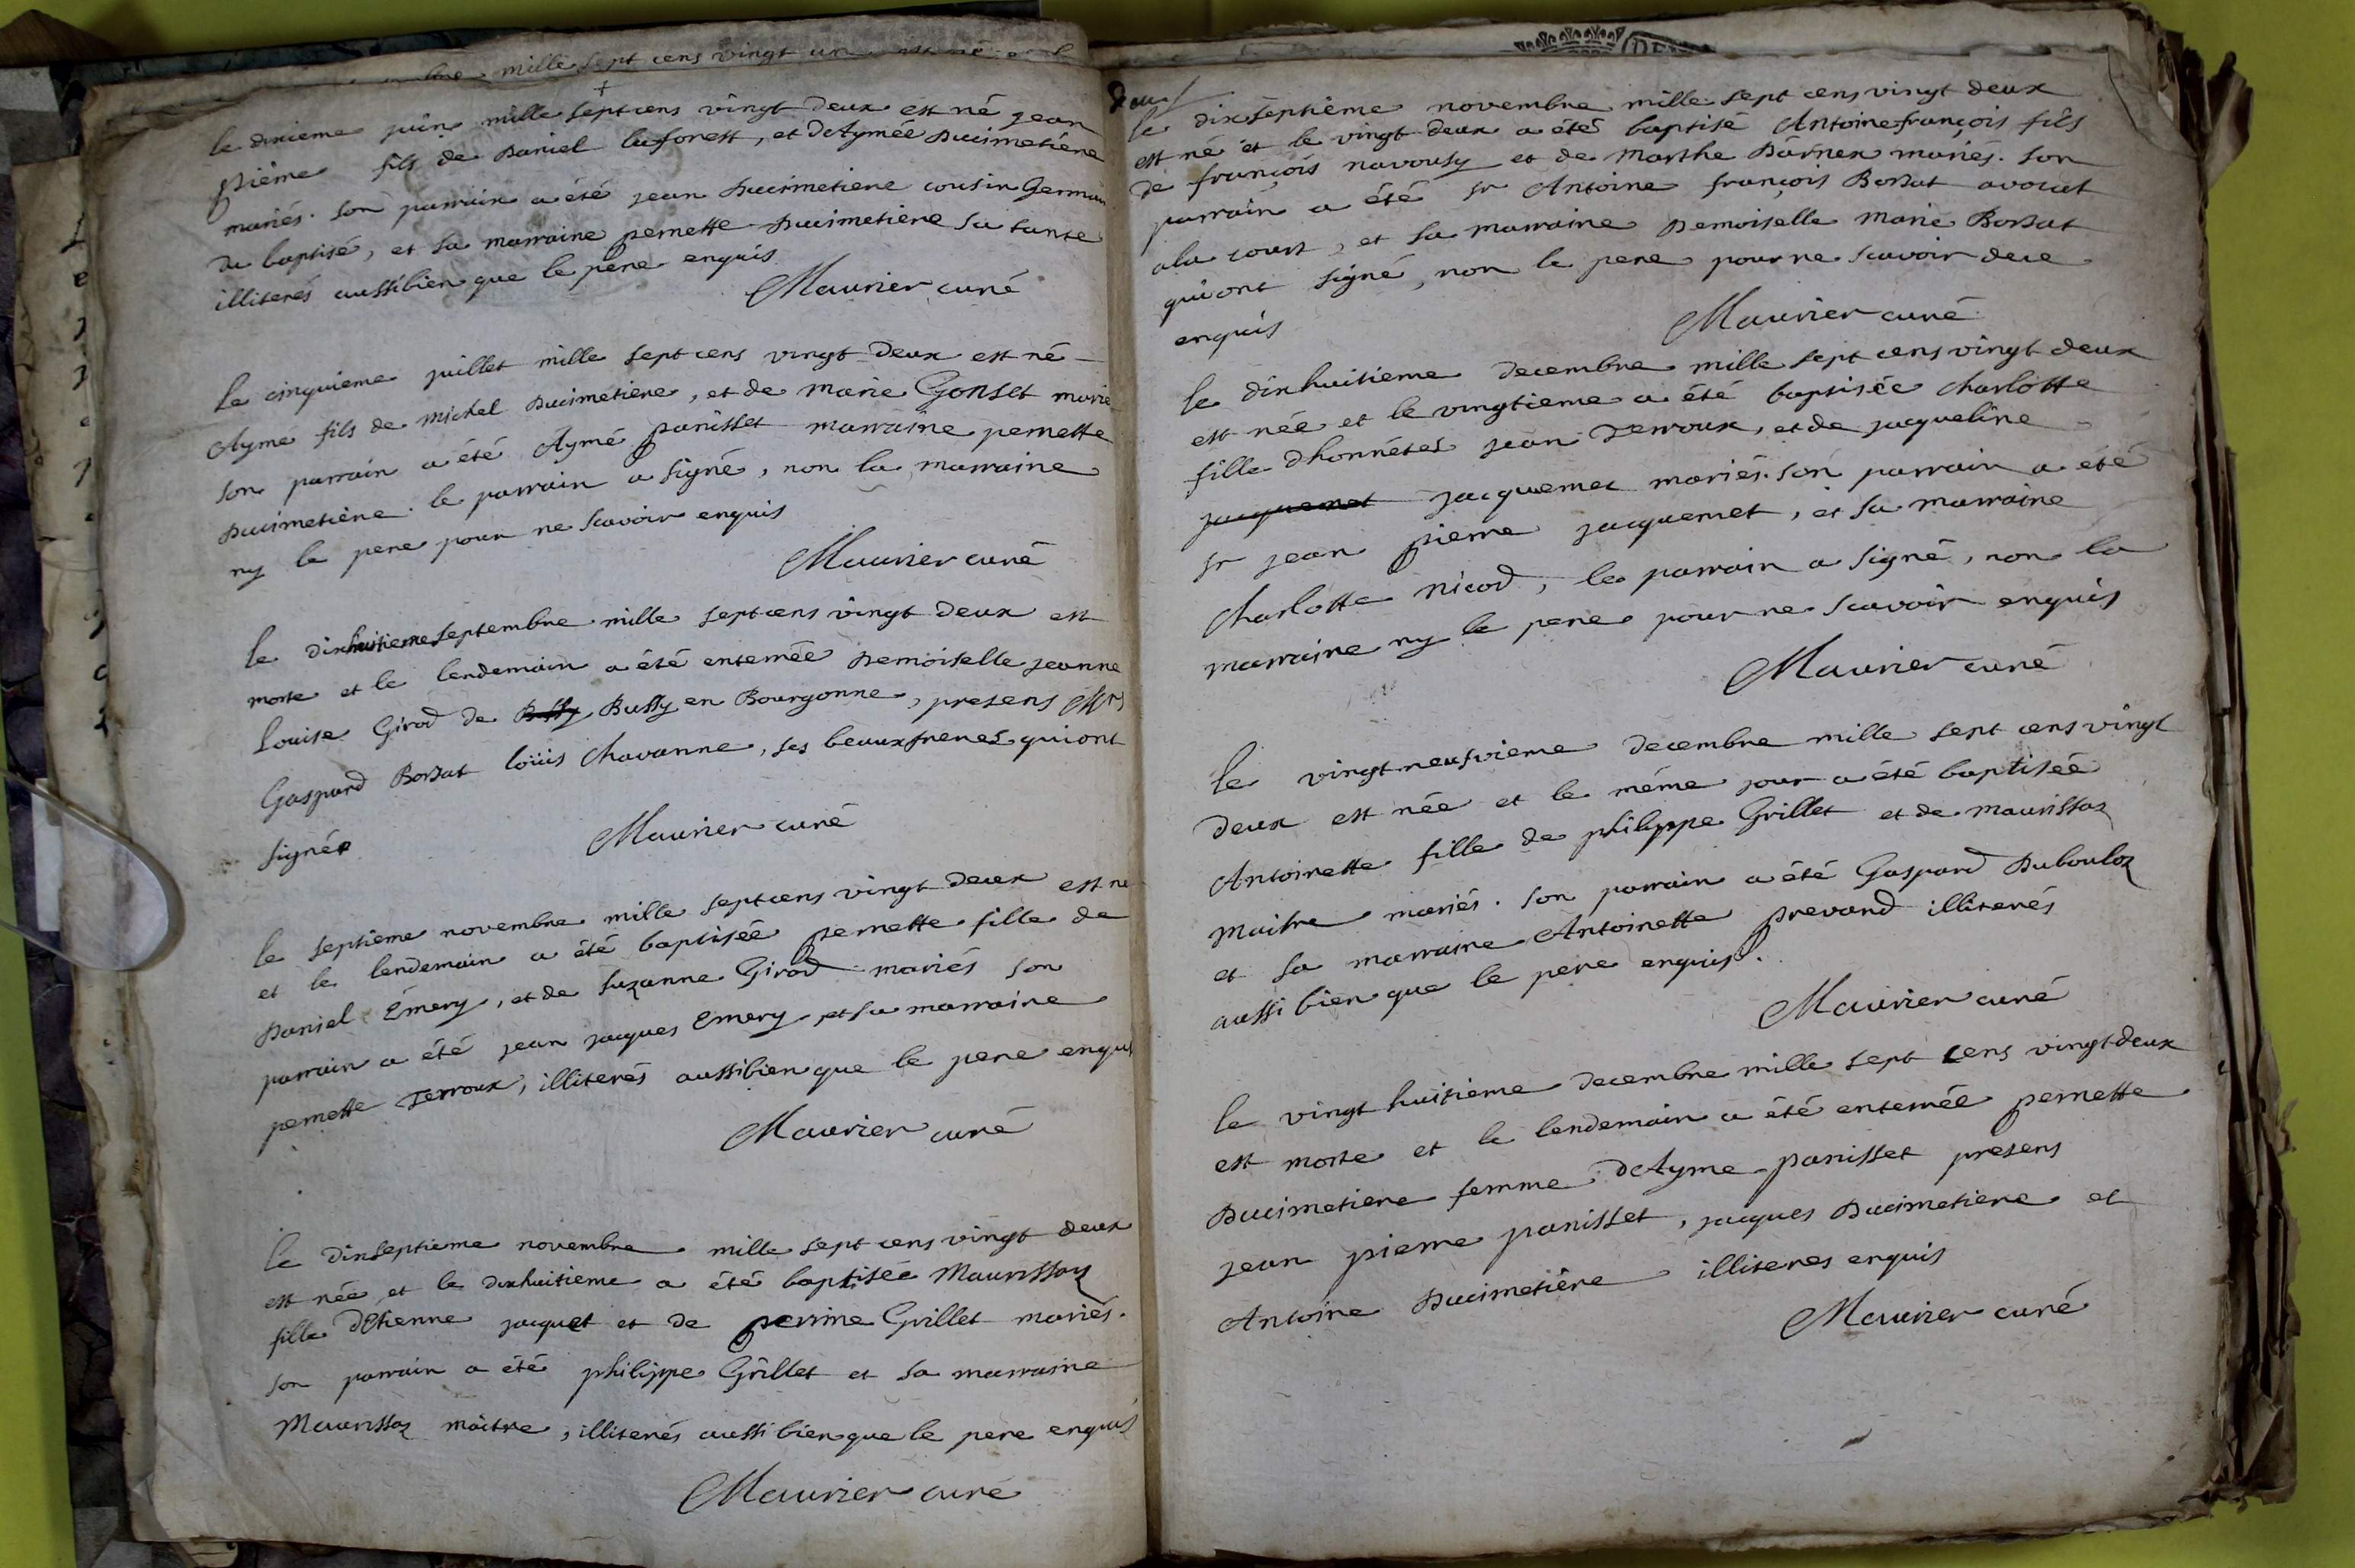 mille sept cens vingt un
le dixieme juin mille septcens vingt deux est né jean
pierre fils de Daniel laforest, et d'Aymée Ducimetiére
mariés. son parrain a été jean Ducimetiere cousin Germain
du baptisé, et sa marraine pernette Ducimetiere sa tante
illiterés aussibien que le pere enquis
Maurier curé
le cinquieme juillet mille septcens vingt deux est né
Aymé fils de Michel Ducimetiere, et de Marie Gonset marié
son parrain a été Aymé panisset marraine pernette
Ducimetiére. le parrain a signé, non la marraine
ny le pere pour ne scavoir enquis
Maurier curé
le dixhuitieme septembre mille septcens vingt deux est
morte et le lendemain a été enterrée Demoiselle jeanne
Louise Girod de Bussy en Bourgonne, presens Mrs
Gaspard Borsat loüis Chavanne, ses beauxfreres quiont
signés
Maurier curé
le septieme novembre mille septcens vingt deux est né
et le lendemain a été baptisée pernette fille de
Daniel Emery, et de suzanne Girod mariés son
parrain a été jean jacques Emery et sa marraine
pernette Terroux, illiterés aussibien que le pere enquis
Maurier curé
le dixseptieme novembre mille sept cens vingt deux
est née et le dixhuitieme a été baptisée Maurissaz
fille d'Etienne jaquet et de perrine Grillet mariés.
son parrain a été philippe Grillet et sa marraine
Maurissaz maitre, illiterés aussi bien que le pere enquis
Maurier curé
le dixseptiéme novembre mille sept cens vingt deux
est né et le vingt deux a été baptisé Antoine françois fils
de françois navousy et de Marthe Dárnex mariés. son
parrain a été sr Antoine françois Borsat avocat
ala court, et sa marraine Demoiselle Marie Borsat
quiont signé, non le pere pour ne scavoir dece
enquis
Maurier curé
le dixhuitieme decembre mille sept cens vingt deux
est née et le vingtieme a été baptisée Charlotte
fille d'honnétes jean Terroux, et de jacqueline
jacquemet jacquemet mariés. son parrain a été
sr jean pierre jacquemet, et sa marraine
Charlotte Nicod, le parrain a signé, non la
marraine ny le pere pour ne scavoir enquis
Maurier curé
le vingt neufvieme decembre mille sept cens vingt
deux est née et le méme jour a été baptisée
Antoinette fille de philippe Grillet et de maurissaz
Maitre mariés. son parrain a été Gaspard Dubouloz
et sa marraine Antoinette prevard illiterés
aussi bien que le pere enquis.
Maurier curé
le vingt huitieme decembre mille sept cens vingt deux
est morte et le lendemain a été enterrée pernette
Ducimetiere femme d'Ayme panisset presens
jean pierre panisset, jacques Ducimetiere et
Antoine Ducimetiére illiteres enquis
Maurier curé